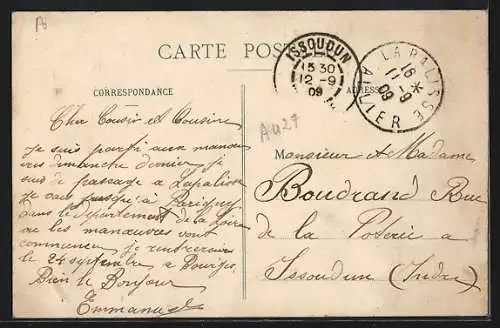 CARTE POSTALE
CORRESPONDANCE
ADRESSE
ISSOUDUN
15 30
12 - 9
09
LAPALISSE
16
11 - 9
09
ALLIER
Au 27
Cher Cousin et Cousine
je suis partit aux manœu
vres dimanche dernier, je
suis de passage a Lapalisse
je vais jusqu'a Parigny
dans le département de la Loire
ou les manœuvres vont
commencer je rentrerai
le 24 septembre a Bourges
Bien le Bonjour
Emmanuel
Monsieur et Madame
Boudrand Rue
de la Poterie a
Issoudun (Indre)